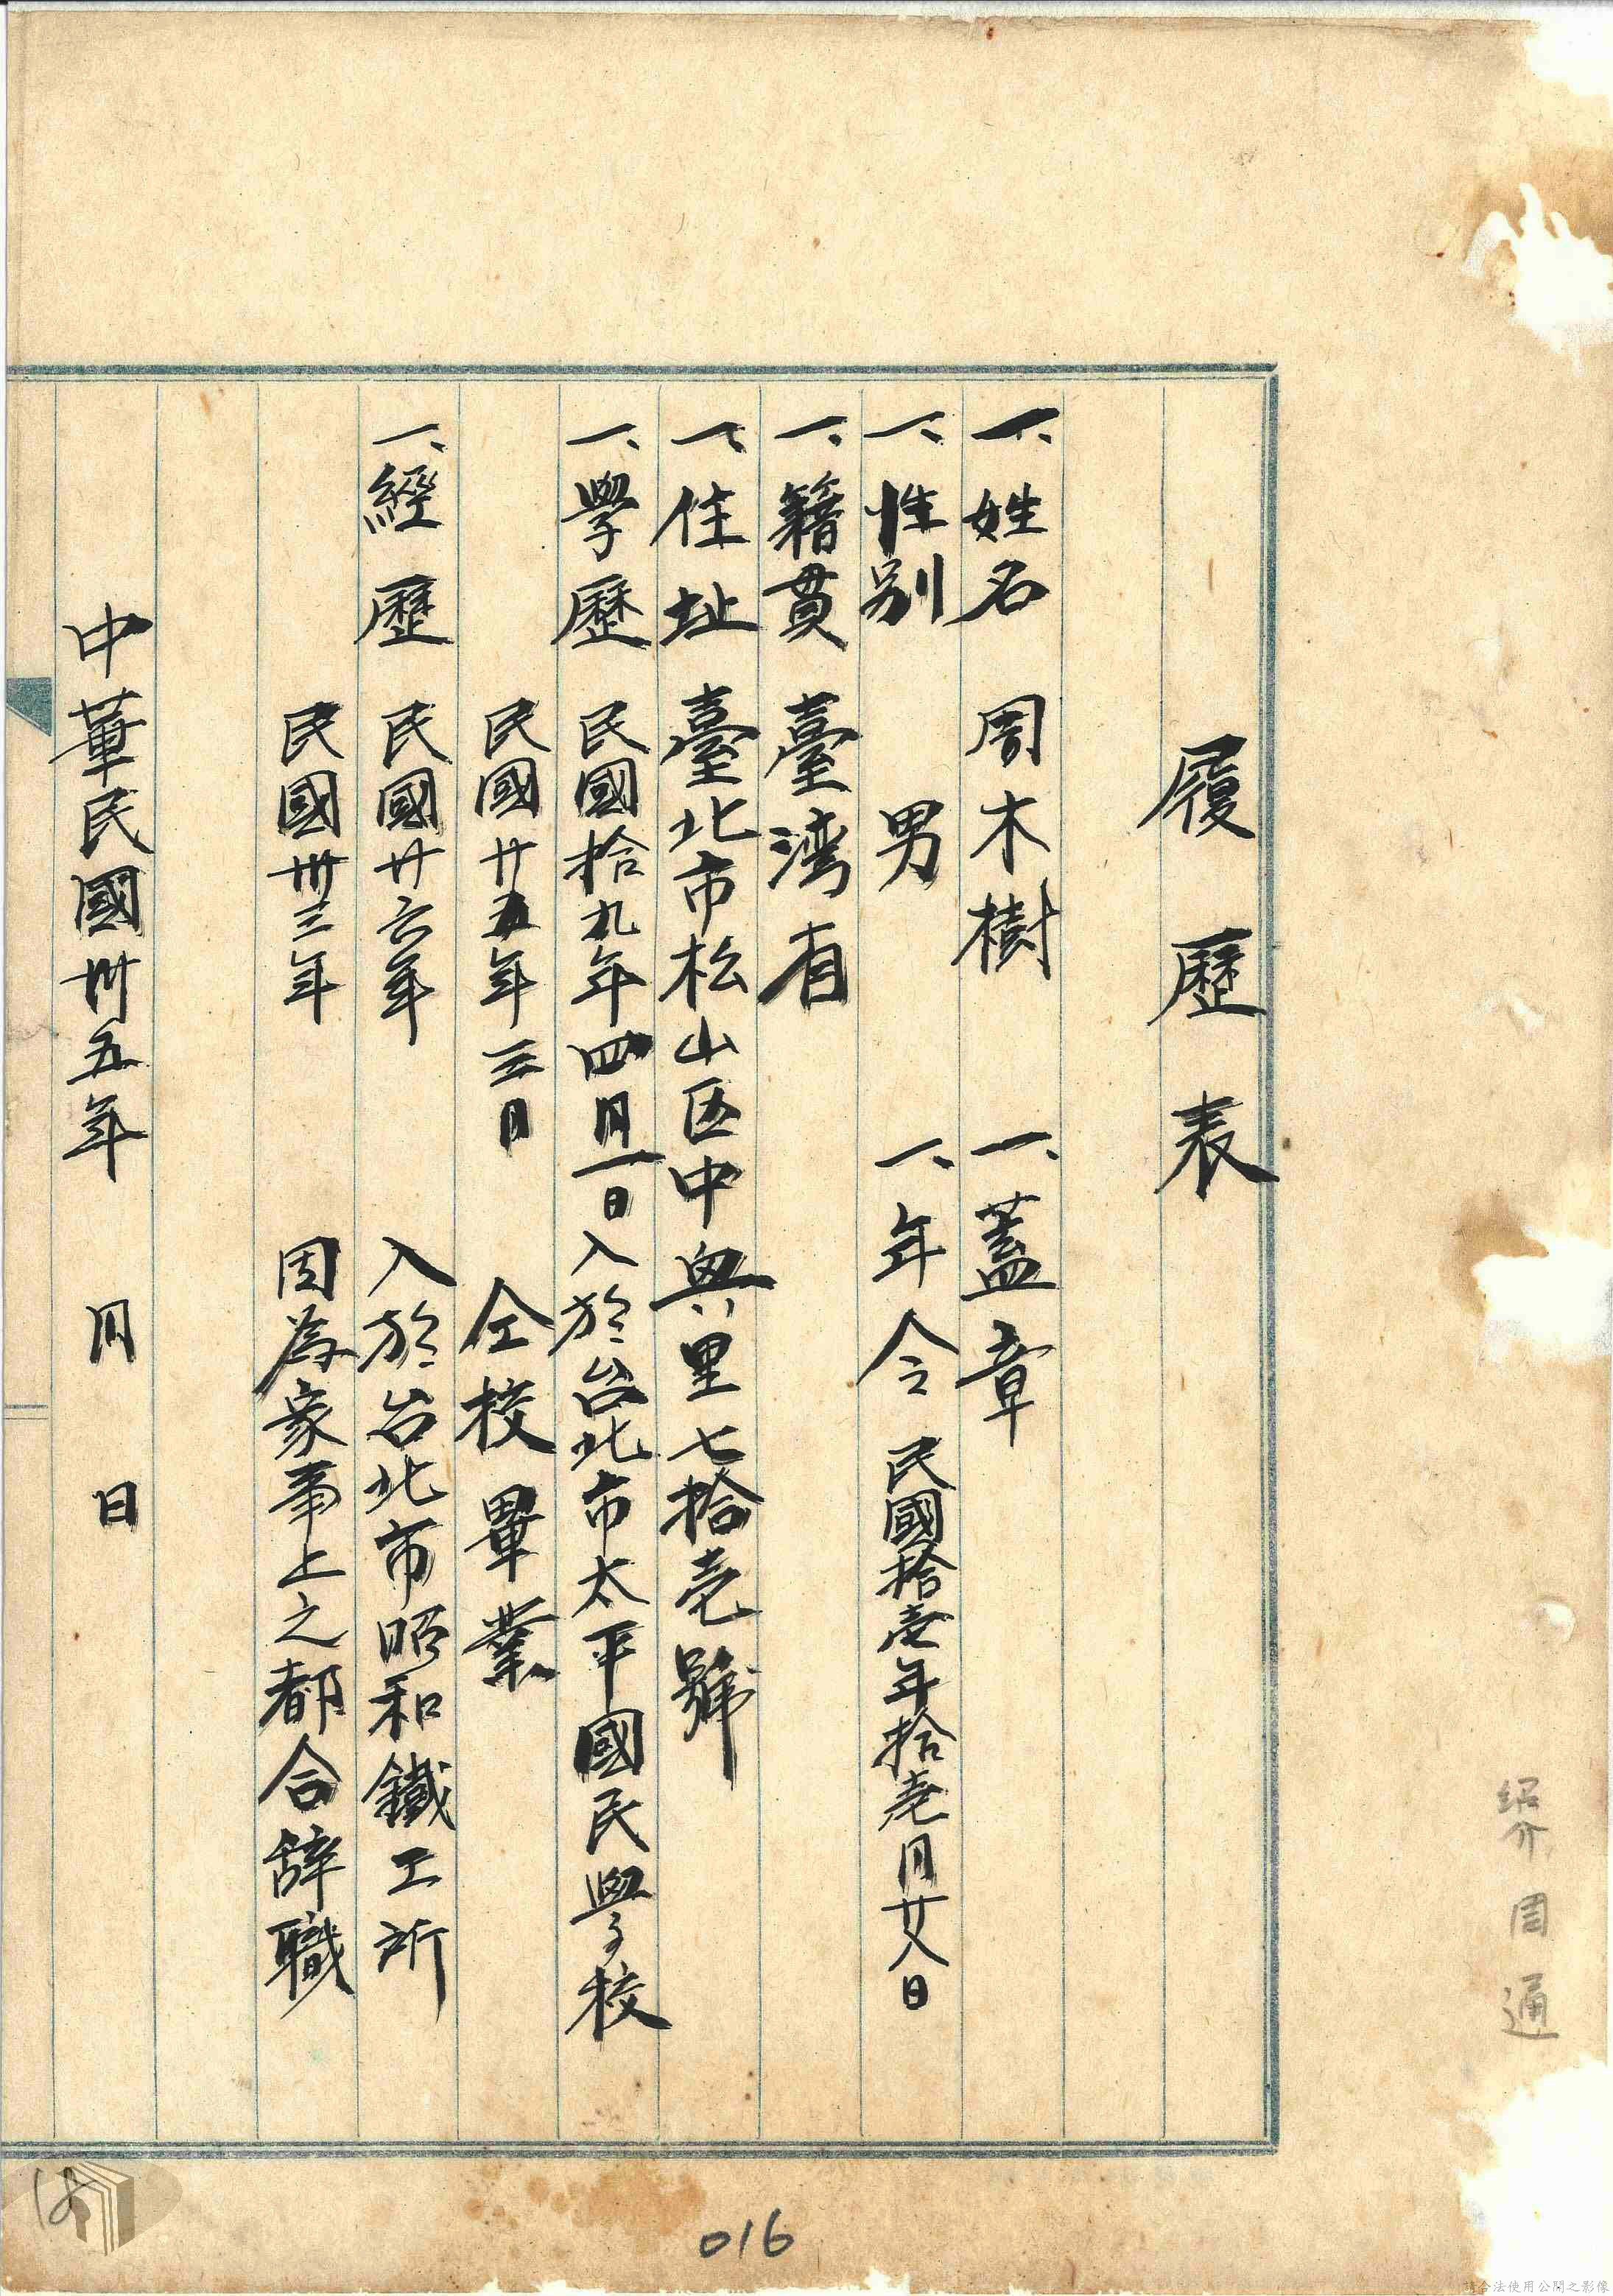 紹介 周通
履歷表
一、姓名 周木樹 一、蓋章
一、性別 男 一、年令 民國拾壱年拾壱月廿八日
一、籍貫 臺湾省
一、住址 臺北市松山区中興里七拾壱號
一、學歷 民國拾九年四月一日入於台北市太平國民學校
民國廿五年三月 仝校畢業
一、經歷 民國廿六年 入於台北市昭和鐵工所
民國卅三年 因為家事上之都合辞職
中華民國卅五年 月 日
016
請合法使用公開之影像